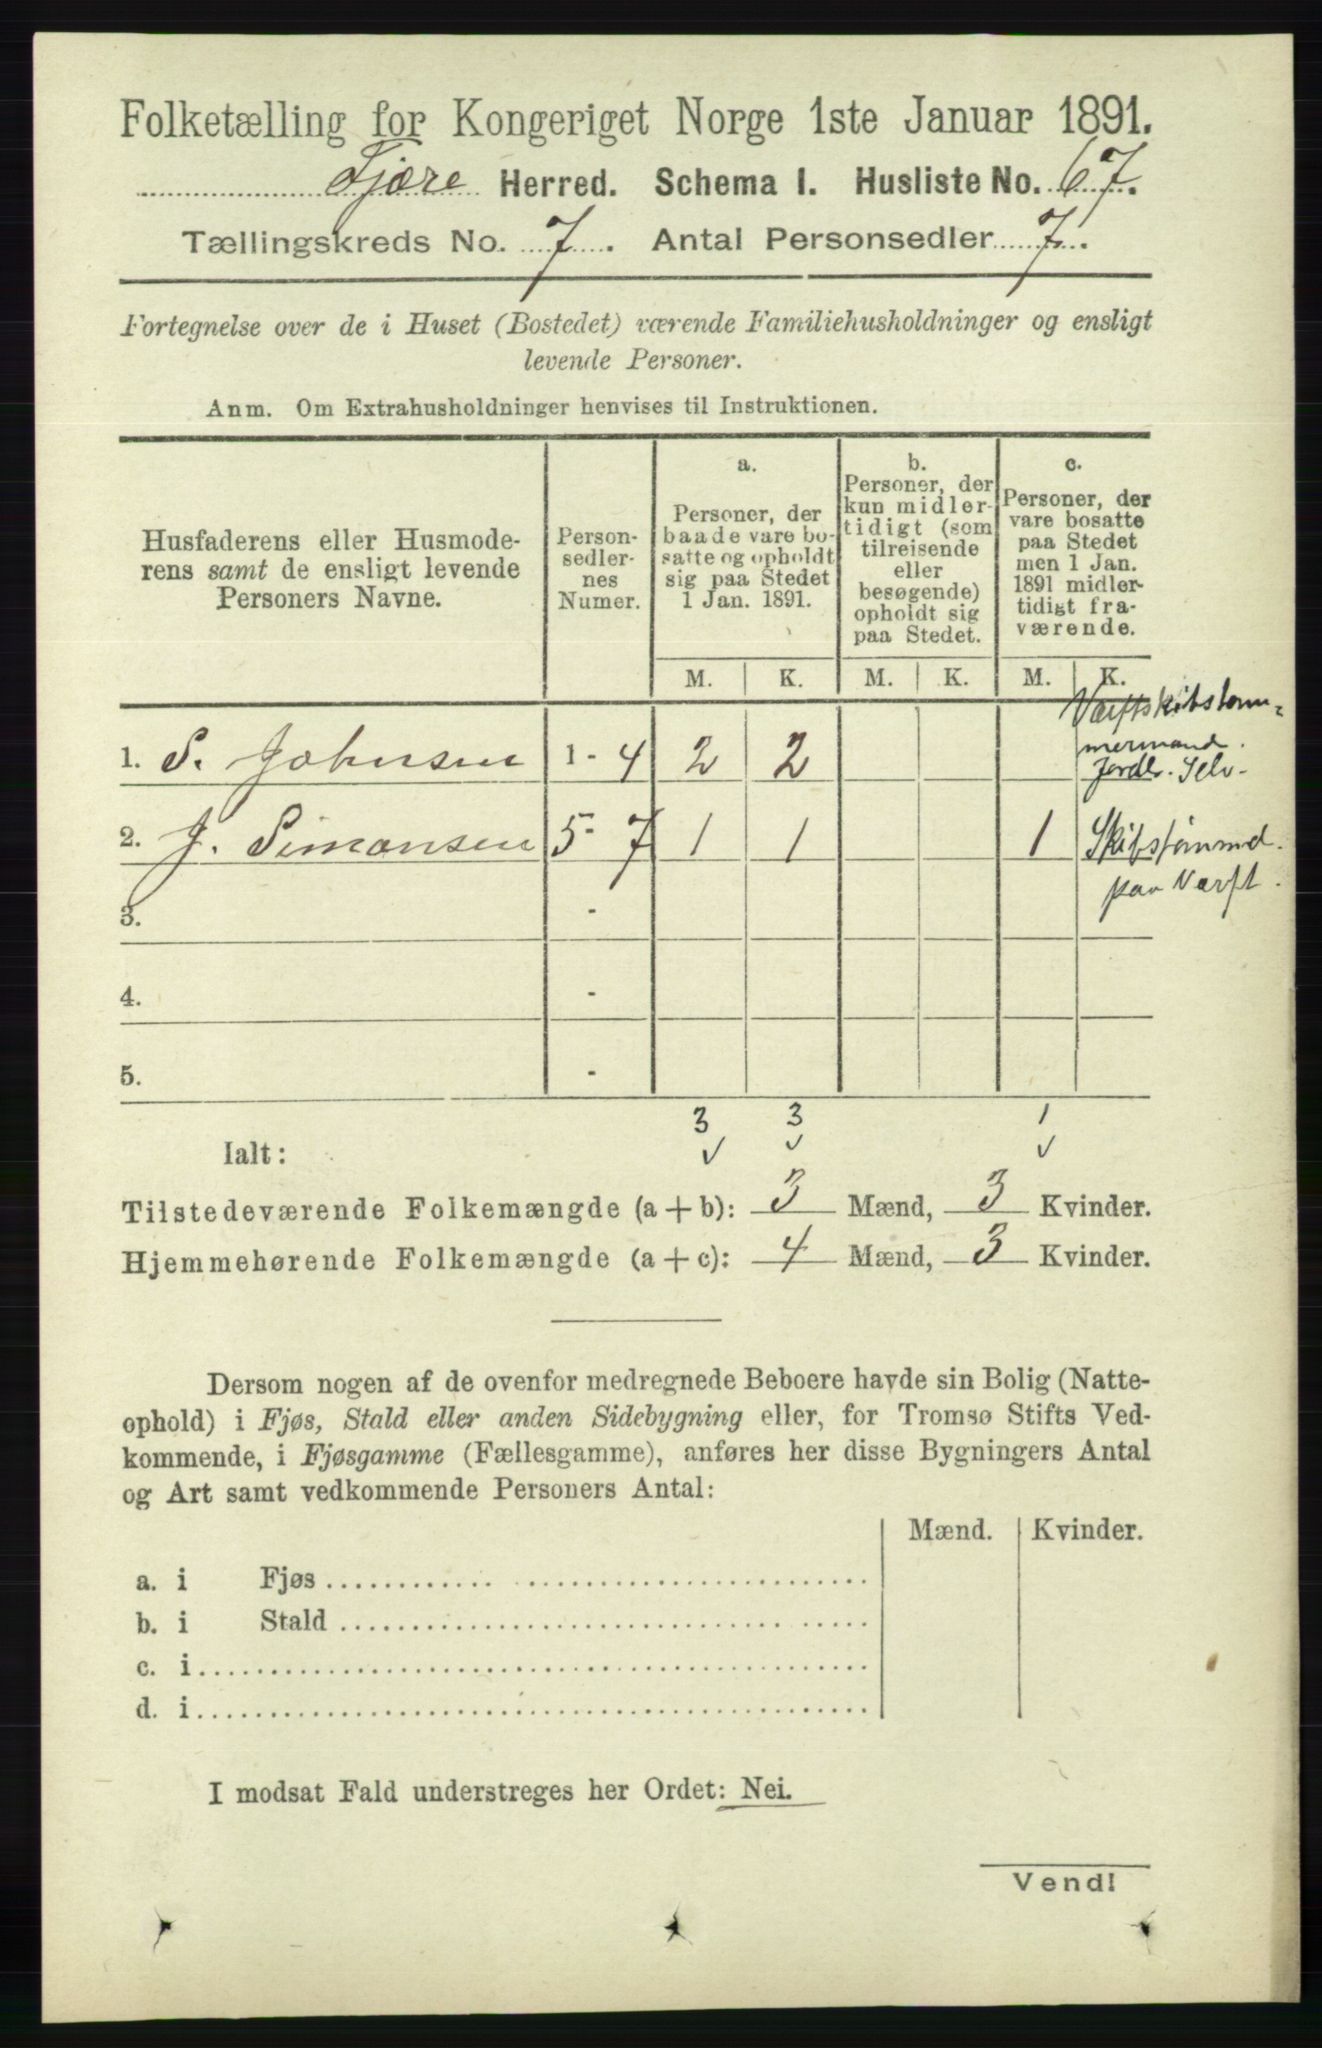 Folketælling for Kongeriget Norge 1ste Januar 1891.
Fjære Herred. Schema I. Husliste No. 67.
Tællingskreds No. 7. Antal Personsedler 7.
Fortegnelse over de i Huset (Bostedet) værende Familiehusholdninger og ensligt
levende Personer.
Anm. Om Extrahusholdninger henvises til Instruktionen.
Husfaderens eller Husmode-
rens samt de ensligt levende
Personers Navne.
Person-
sedler-
nes
Numer.
a.
Personer, der
baade vare bo-
satte og opholdt
sig paa Stedet
1 Jan. 1891.
b.
Personer, der
kun midler-
tidigt (som
tilreisende
eller
besøgende)
opholdt sig
paa Stedet.
c.
Personer, der
vare bosatte
paa Stedet
men 1 Jan.
1891 midler-
tidigt fra-
værende.
M. K. M. K. M. K.
1. S. Johnsen 1 - 4 2 2
Værftskibstøm-
mermand.
Jordb. Selv-
2. J. Simonsen 5 - 7 1 1 1 Skibstømmd.
paa Værft.
3. -
4. -
5. -
3 3 1
Ialt: ✓ ✓ ✓
Tilstedeværende Folkemængde (a + b): 3 Mænd, 3 Kvinder.
Hjemmehørende Folkemængde (a + c): 4 Mænd, 3 Kvinder.
Dersom nogen af de ovenfor medregnede Beboere havde sin Bolig (Natte-
ophold) i Fjøs, Stald eller anden Sidebygning eller, for Tromsø Stifts Ved-
kommende, i Fjøsgamme (Fællesgamme), anføres her disse Bygningers Antal
og Art samt vedkommende Personers Antal:
Mænd. Kvinder.
a. i Fjøs
b. i Stald
c. i
d. i
I modsat Fald understreges her Ordet: Nei.
Vend!